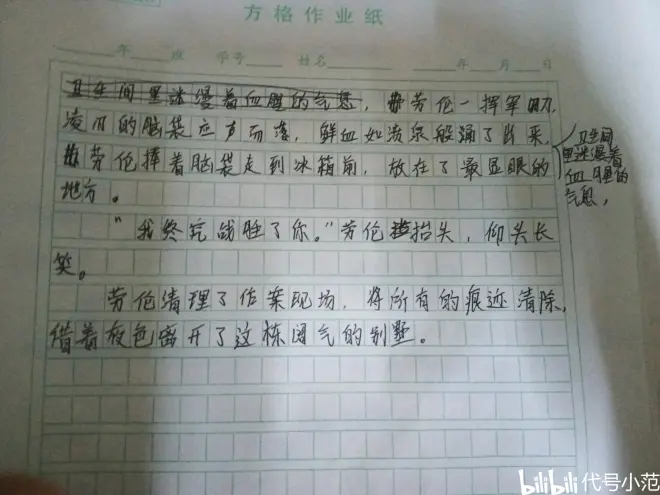 方格作业纸
年 班 学号 姓名 年 月 日
卫生间里迷漫着血腥的气息，劳伦一挥军刀，
凌川的脑袋应声而落，鲜血如流泉般涌了出来，
劳伦捧着脑袋走到冰箱前，放在了最显眼的
地方。
卫生间
里迷漫着
血腥的
气息，
“我终究战胜了你。”劳伦抬头，仰头长
笑。
劳伦清理了作案现场，将所有的痕迹清除，
借着夜色离开了这栋阔气的别墅。
bilibili 代号小范